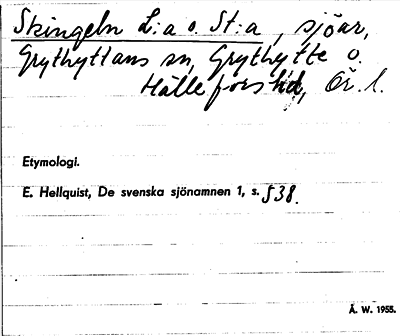 Skingeln L:a o. St:a, sjöar,
Grythyttans sn, Grythytte o.
Hällefors hd, Ör. l.
Etymologi.
E. Hellquist, De svenska sjönamnen 1, s. 538.
Å. W. 1955.